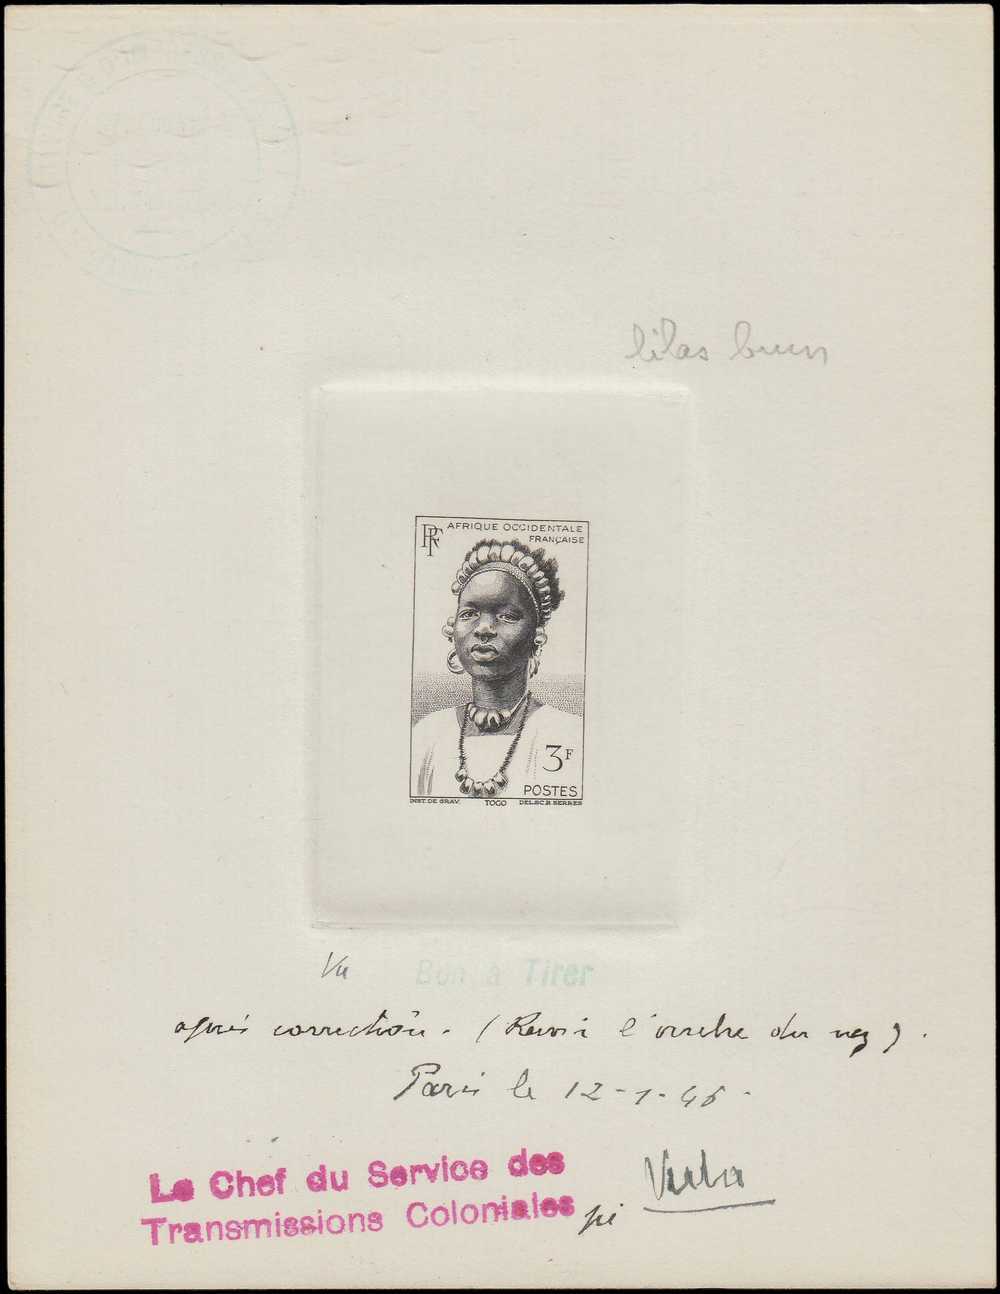 lilas brun
RF AFRIQUE OCCIDENTALE
FRANÇAISE
3F
POSTES
INST. DE GRAV. TOGO DEL.SC.R SERRES
Vu Bon à Tirer
après correction. (Revoir l'ombre du nez).
Paris le 12-1-46.
Le Chef du Service des
Transmissions Coloniales
pi